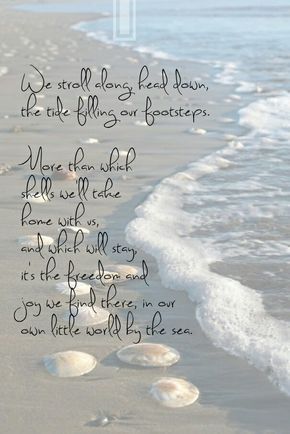 We stroll along, head down,
the tide filling our footsteps.
More than which
shells we'll take
home with us,
and which will stay,
it's the freedom and
joy we find there, in our
own little world by the sea.